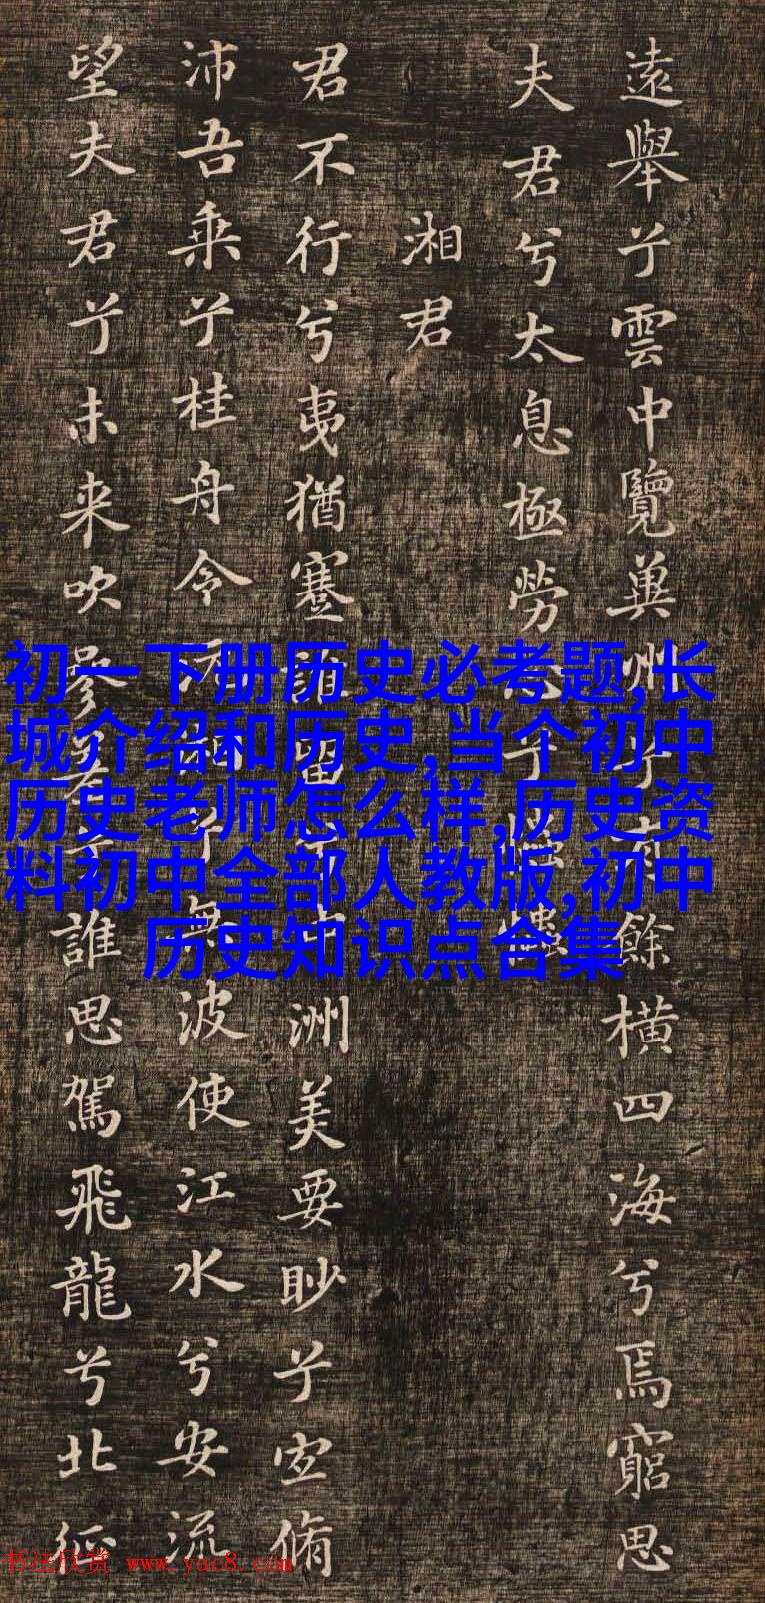 遠舉兮雲中覽兾州兮有餘橫四海兮焉窮思
夫君兮太息極勞心兮
湘君
君不行兮夷猶蹇誰留兮中洲美要眇兮宜脩
沛吾乘兮桂舟令沅湘兮無波使江水兮安流
望夫君兮未来吹參差兮誰思駕飛龍兮北征
初一下册历史必考题,长
城介绍和历史,当个初中
历史老师怎么样,历史资
料初中全部人教版,初中
历史知识点合集
书法欣赏 www.yac8.com